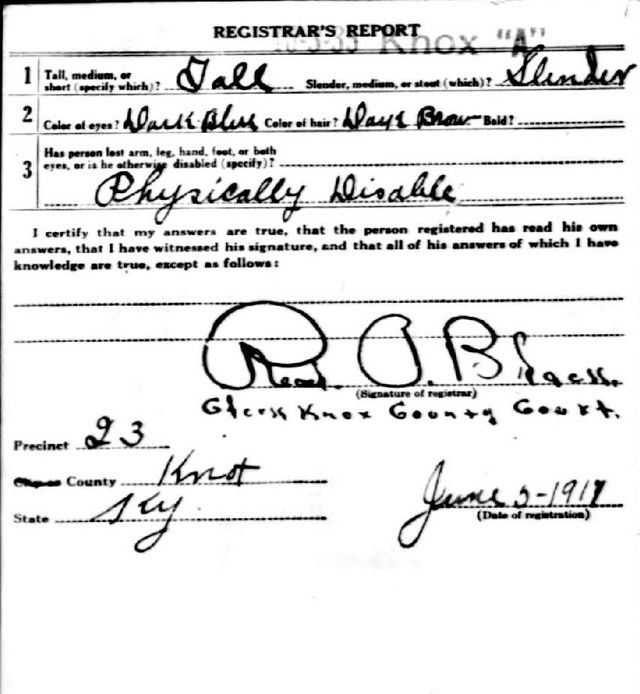 REGISTRAR'S REPORT
Knox "A"
1 Tall, medium, or short (specify which)? Tall Slender, medium, or stout (which)? Slender
2 Color of eyes? Dark Blue Color of hair? Dark Brown Bald?
3 Has person lost arm, leg, hand, foot, or both eyes, or is he otherwise disabled (specify)?
Physically Disable
I certify that my answers are true, that the person registered has read his own
answers, that I have witnessed his signature, and that all of his answers of which I have
knowledge are true, except as follows:
Read. A. Black.
(Signature of registrar)
Clerk Knox County Court.
Precinct 23
County Knox
State Ky.
June 5-1917
(Date of registration)